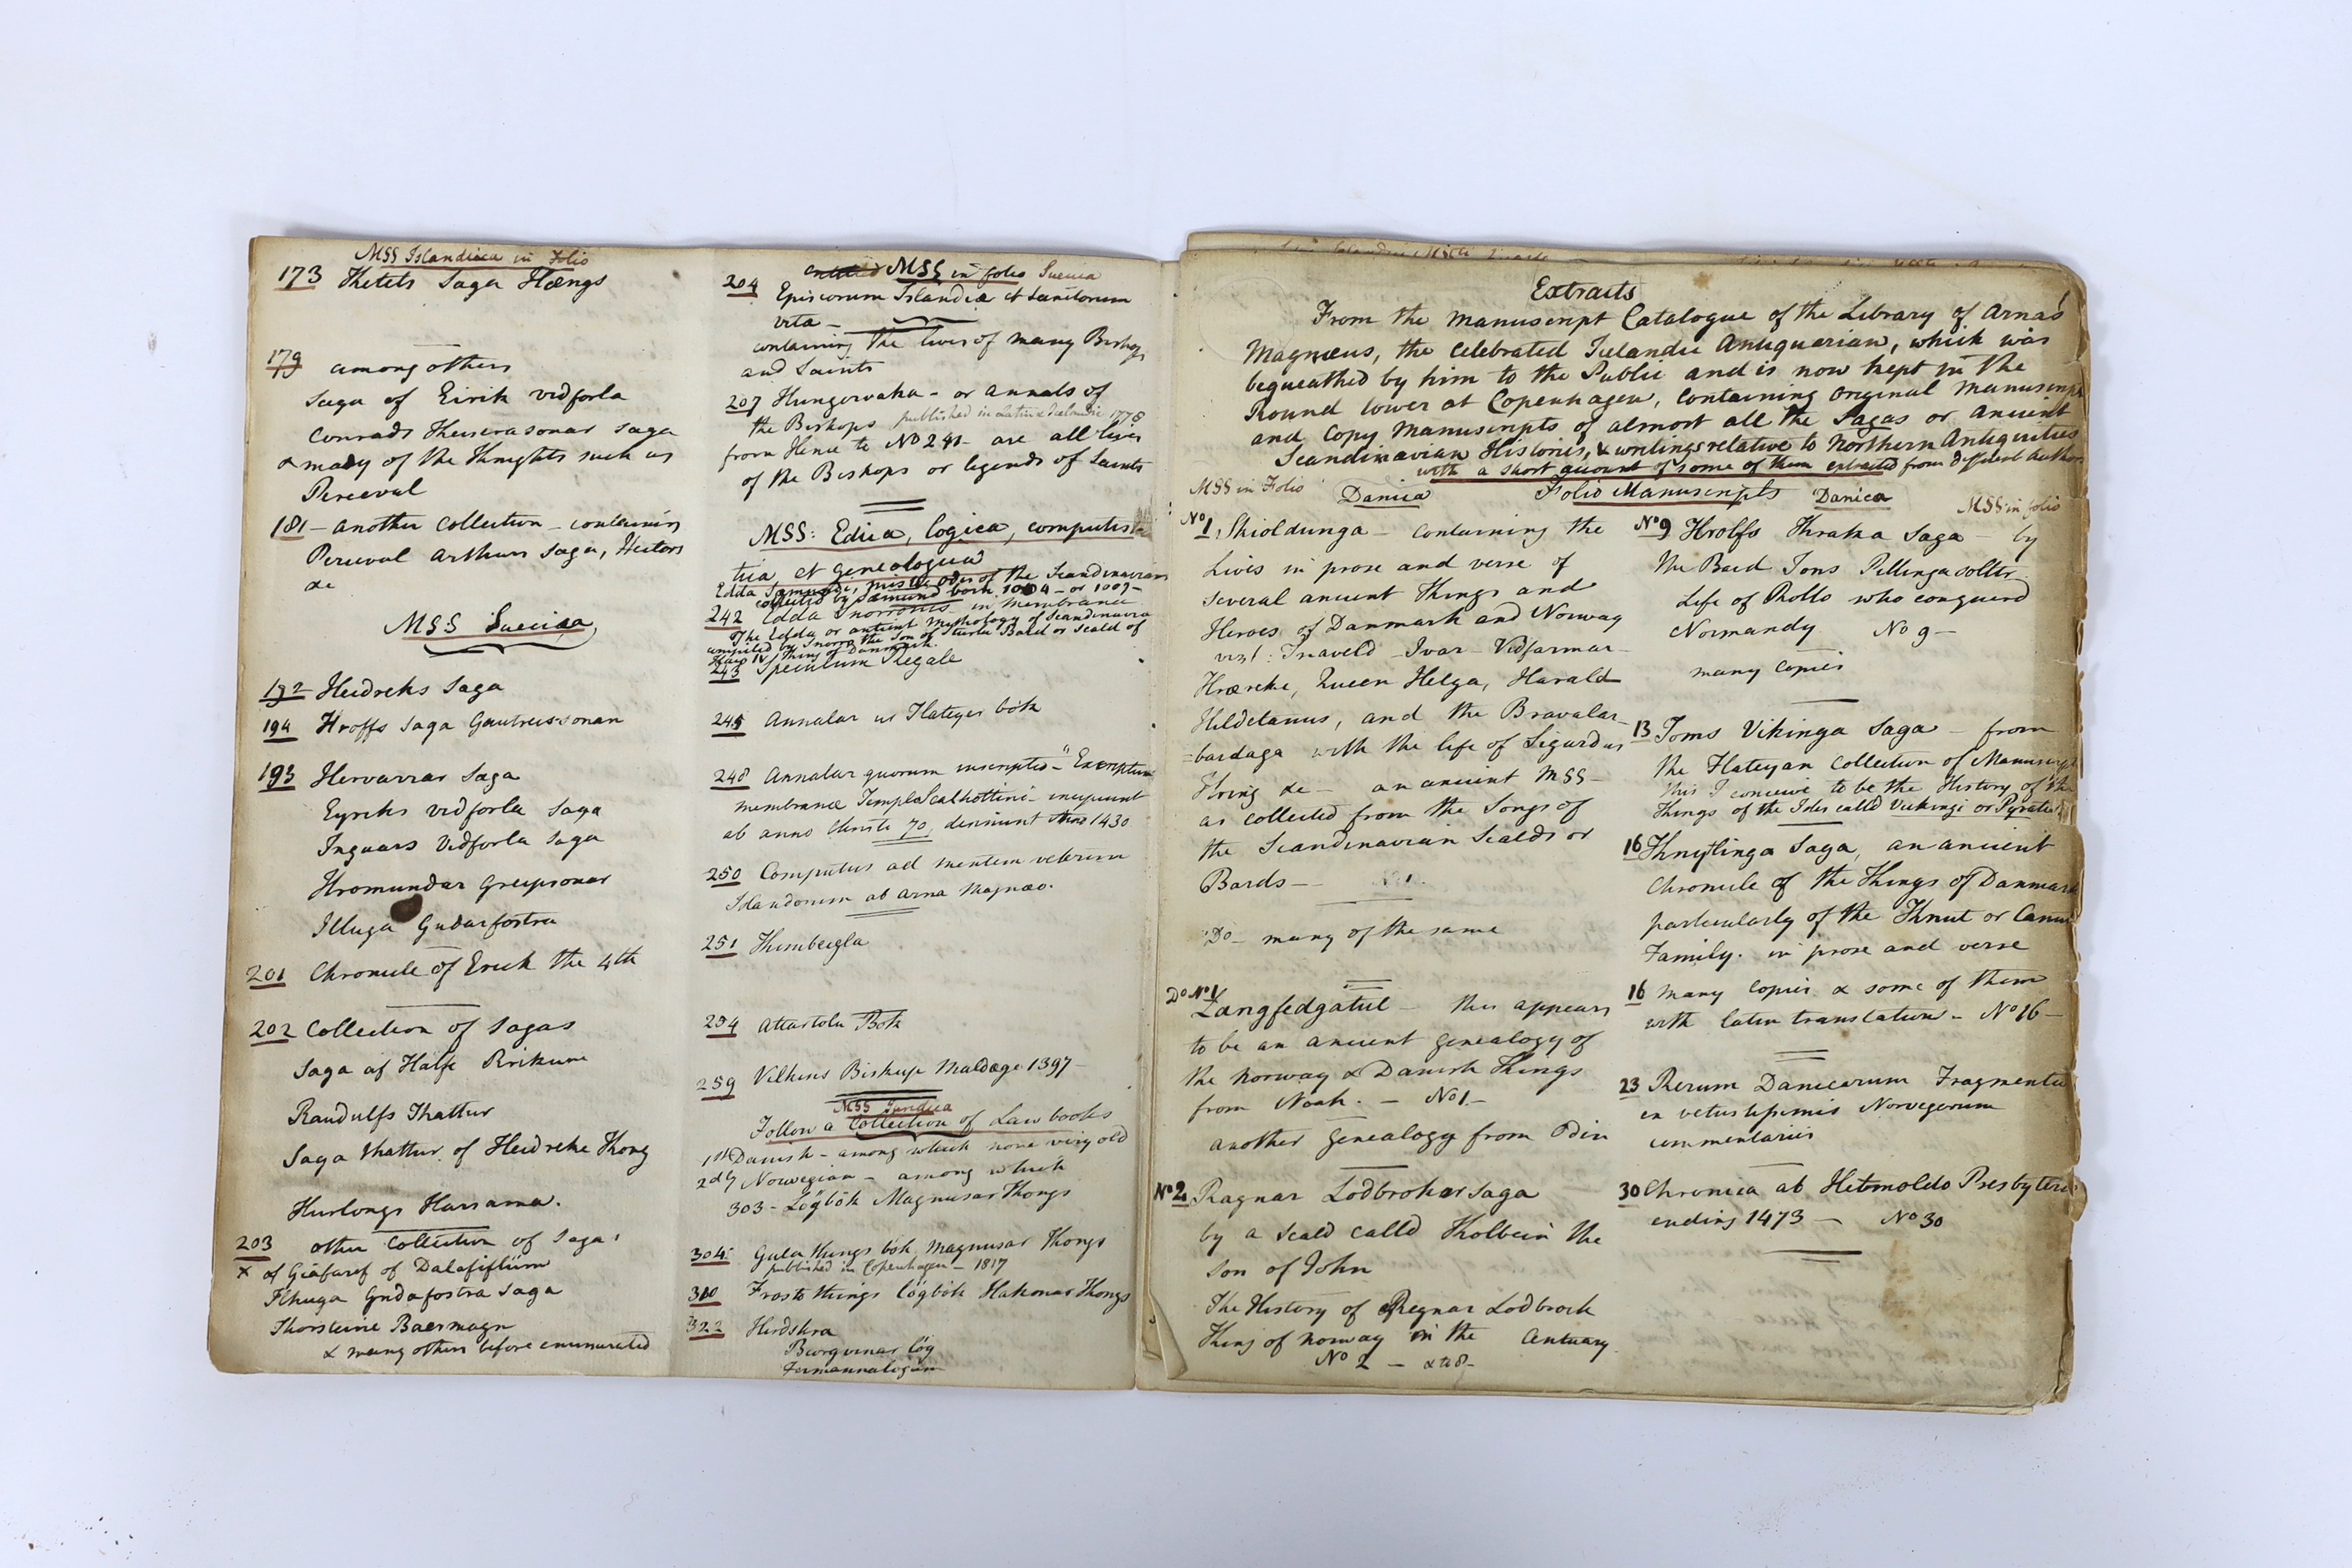 MSS Islandica in Folio
173 Thetels Saga Hængs
179 among others
Saga of Eirik vidforla
Conrads Keiserasonar Saga
& many of the Knights such as
Perceval
181 - another Collection - containing
Perceval Arthurs Saga, Hectors
&c
MSS Suecica
192 Heidreks Saga
194 Hrolfs Saga Gautreissonan
193 Hervarrar Saga
Eyriks vidforla Saga
Inguars Vidforla Saga
Hromundar Greipsonar
Illuga Gudarfostra
201 Chronicle of Erick the 4th
202 Collection of Sagas
Saga af Halfe
Raudulfs Thattur
Saga thattur of Heidreke Kong
203 other Collection of Sagas
x of Giafaref of Dalafiflum
Illhuga Gridafostra Saga
Thorsteine Baermagn
& many others before enumerated
MSS in folio Suecica
204 Episcorum Islandiæ et Sanctorum
vita -
containing the lives of many Bishops
and Saints
207 Hungorvaka - or annals of
the Bishops published in Latin & Icelandic 1778
from Hence to No 241 - are all lives
of the Bishops or legends of Saints
MSS: Edica, logica, computis
tica, et Genealogica
Edda Sæmundi, odes of the Scandinavians
collected by Sæmund born 1054 - or 1057 -
242 Edda Snorronis - in membrana
The Edda or antient Mythology of Scandinavia
compiled by Snorro the Son of Sturla Bard or Scald of
King of Danmark.
243 Speculum Regale
245 Annalar ur Flateyer bók
248 Annalar quorum inscriptio - "Exceptum
membrana Templo Scalhottino - incipiunt
ab anno Christi 70, desinunt 1430
250 Computus ad mentem veterum
Islandorum ab Arna Magnæo.
251 Rimbeigla
254 Attartolu Bok
259 Vilkins Biskups Maldage 1397 -
MSS Juridica
Follow a Collection of Law books
1st Danish - among which none very old
2dly Norwegian - among which
303 - Lögbók Magnusar Kongs
304 Gula things bók Magnusar Kongs
published in Copenhagen - 1817
310 Frosto things lögbók Hakonar Kongs
322 Hirdskra
Biorgvinar lög
Farmannalogum
Extracts
From the Manuscript Catalogue of the Library of Arnas
Magnæus, the Celebrated Icelandic Antiquarian, which was
bequeathed by him to the Public and is now kept in the
Round tower at Copenhagen, Containing original manuscript
and Copy Manuscripts of almost all the Sagas or ancient
Scandinavian Histories, & writings relative to Northern Antiquities
with a short account of some of them extracted from different Authors
MSS in Folio Danica Folio Manuscripts Danica MSS in folio
No 1, Skioldunga - containing the
Lives in prose and verse of
several ancient Kings and
Heroes of Danmark and Norway
vizt: Ivar - Vidfarmar -
Hræreke, Queen Helga, Harald
Hildetanus, and the Bravalar-
=bardaga with the life of Sigurdus
Hring &c - an ancient MSS -
as collected from the Songs of
the Scandinavian Scalds or
Bards - No 1.
Do - many of the same
Do No 1 Langfedgatal - this appears
to be an ancient Genealogy of
the Norway & Danish Kings
from Noah. - No 1 -
another Genealogy from Odin
No 2, Ragnar Lodbrokar Saga
by a Scald calld Kolbein the
son of John
The History of Regnar Lodbrock
King of Norway in the Centuary
No 2 - & to 8 -
No 9 Hrolfs Kraka Saga - by
the Bard Jons
Life of Rollo who conquerd
Normandy No 9 -
many Copies
13 Joms Vikinga Saga - from
the Flateyan Collection of Manuscripts
this I conceive to be the History of the
Kings of the Isles calld Vickingi or Pyrates
16 Knytlinga Saga, an ancient
Chronicle of the Kings of Danmark
particularly of the Knut or Canute
Family. in prose and verse
16 many Copies & some of them
with latin translation - No 16 -
23 Rerum Danicarum Fragmenta
ex vetustissimis Norvegorum
commentariis
30 Chronica ab Helmoldo Presbytero
ending 1473 - No 30